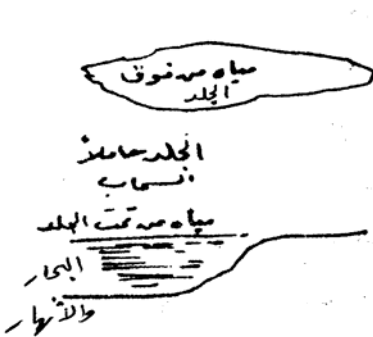 مياه من فوق
الجلد
الجلد حاملاً
السحاب
مياه من تحت الجلد
البحار
والأنهار